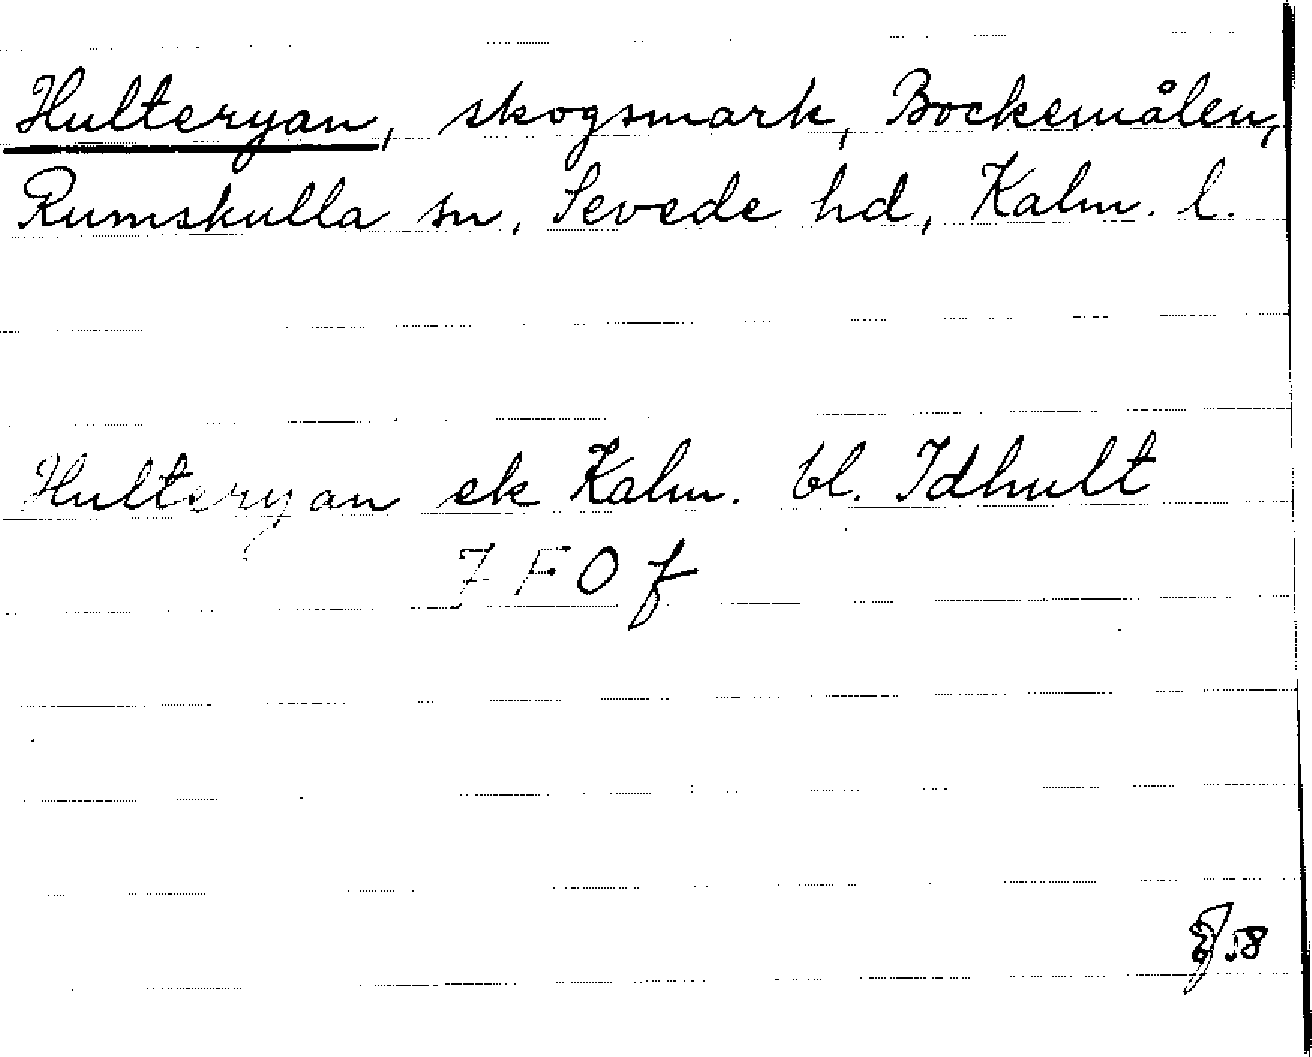 Hulteryan, skogsmark, Bockemålen,
Rumskulla sn, Sevede hd, Kalm. l.
Hulteryan ek Kalm. bl. Idhult
7 F O f
58